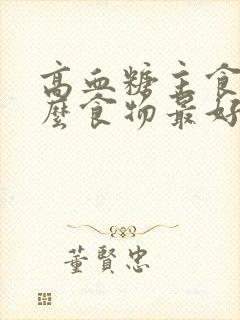 高血糖主食
麼食物最好
董賢忠